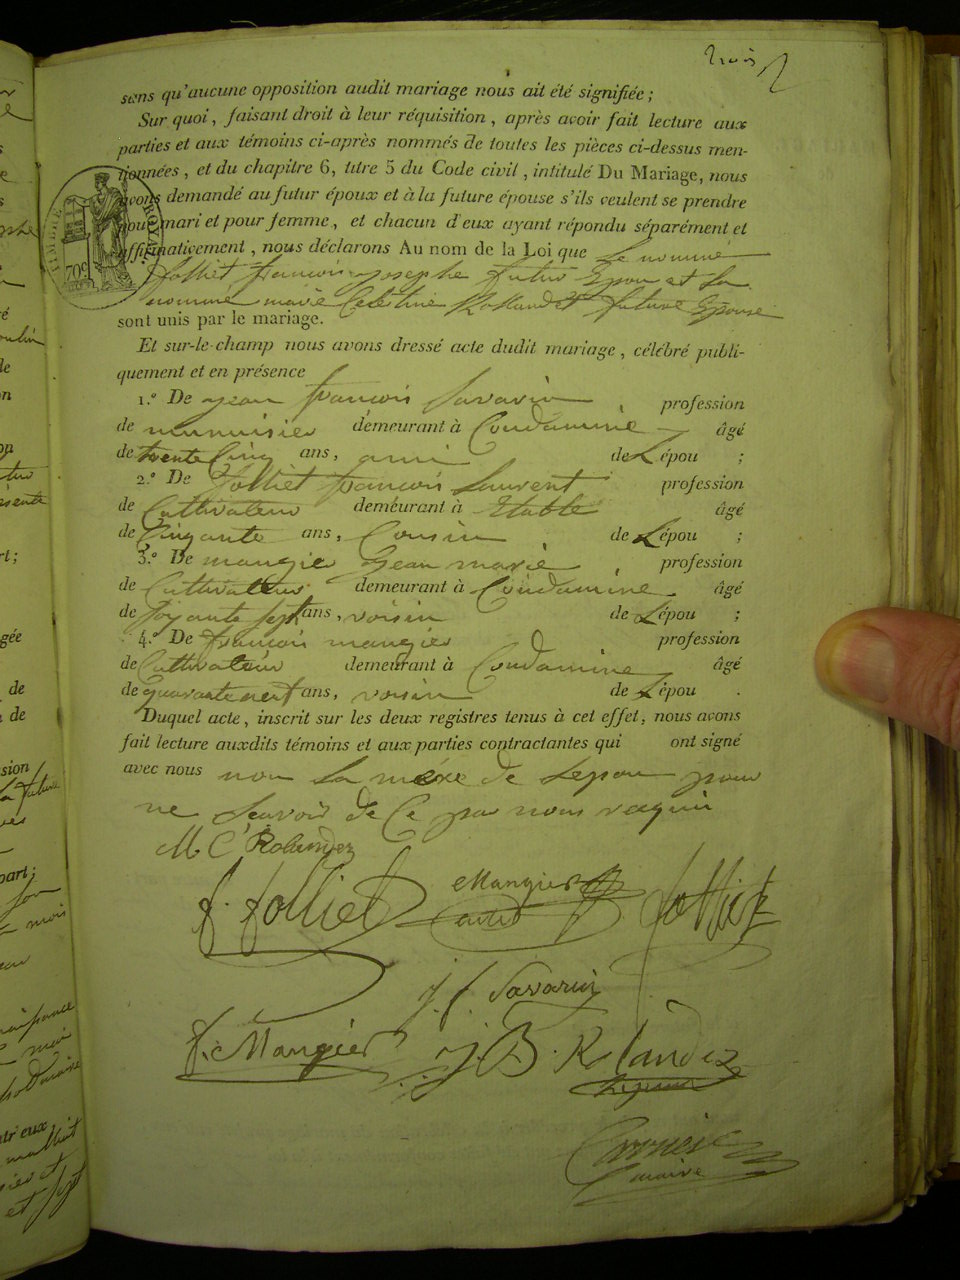 trois
sans qu'aucune opposition audit mariage nous ait été signifiée ;
Sur quoi, faisant droit à leur réquisition, après avoir fait lecture aux
parties et aux témoins ci-après nommés de toutes les pièces ci-dessus men-
tionnées, et du chapitre 6, titre 5 du Code civil, intitulé Du Mariage, nous
avons demandé au futur époux et à la future épouse s'ils veulent se prendre
pour mari et pour femme, et chacun d'eux ayant répondu séparément et
affirmativement, nous déclarons Au nom de la Loi que Le nommé
TIMBRE ROYAL
70c
folliet françois josephe futur Epou et La
nommé marie Celestine Rollandet future Epouse
sont unis par le mariage.
Et sur-le-champ nous avons dressé acte dudit mariage, célébré publi-
quement et en présence
1.º De jean françois Savarin , profession
de menuisier demeurant à Condamine âgé
de trente Cinq ans, ami de Lépou ;
2.º De folliet françois Laurent profession
de Cultivateur demeurant à Etable âgé
de Cinqante ans, Cousin de Lépou ;
3.º De mangier jean marie , profession
de Cultivateur demeurant à Condamine âgé
de soyante sept ans, voisin de Lépou ;
4.º De françois mangier profession
de Cultivateur demeurant à Condamine âgé
de quarante neuf ans, voisin de Lépou .
Duquel acte, inscrit sur les deux registres tenus à cet effet, nous avons
fait lecture auxdits témoins et aux parties contractantes qui ont signé
avec nous non La mère de Lepou pour
ne Scavoir de Ce par nous requis
M C Rolandez
f. folliet
Mangier
folliet
J. f. Savarin
f. Mangier
J. B. Rolandez
maire